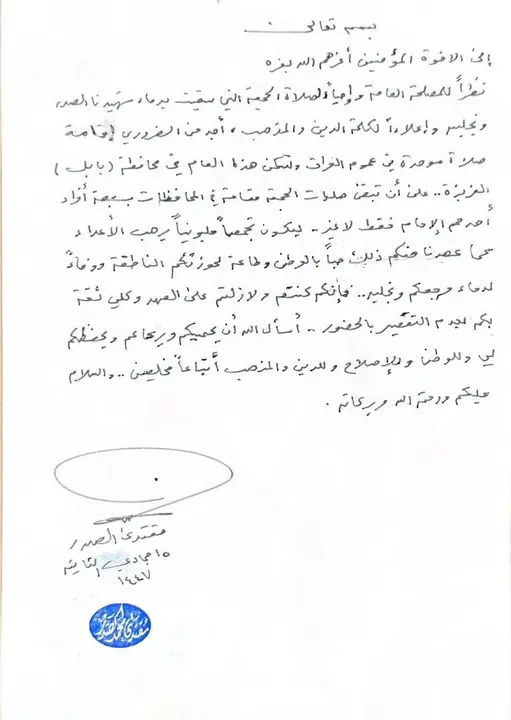 بسمه تعالى
إلى الاخوة المؤمنين أعزهم الله بعزه
نظراً للمصلحة العامة وإحياءً لصلاة الجمعة التي سقيت بدماء شهيدنا الصدر
ونجليه وإعلاءاً لكلمة الدين والمذهب، أجد من الضروري إقامة
صلاة موحدة في عموم العراق ولتكن هذا العام في محافظة (بابل)
العزيزة.. على أن تبقى صلوات الجمعة مقامة في المحافظات بسبعة أفراد
أحدهم الإمام فقط لا غير.. ليكون تجمعاً مليونياً يرهب الأعداء
كما عهدنا منكم ذلك حباً بالوطن وطاعة لحوزتكم الناطقة ووفاءً
لدماء مرجعكم ونجليه.. فإنكم كنتم ولازلتم على العهد وكلي ثقة
بكم لعدم التقصير بالحضور.. أسأل الله أن يحميكم ويرعاكم ويحفظكم
لي وللوطن وللإصلاح وللدين والمذهب أتباعاً مخلصين.. والسلام
عليكم ورحمة الله وبركاته.
مقتدى الصدر
١٥ جمادي الثانية
١٤٤٧